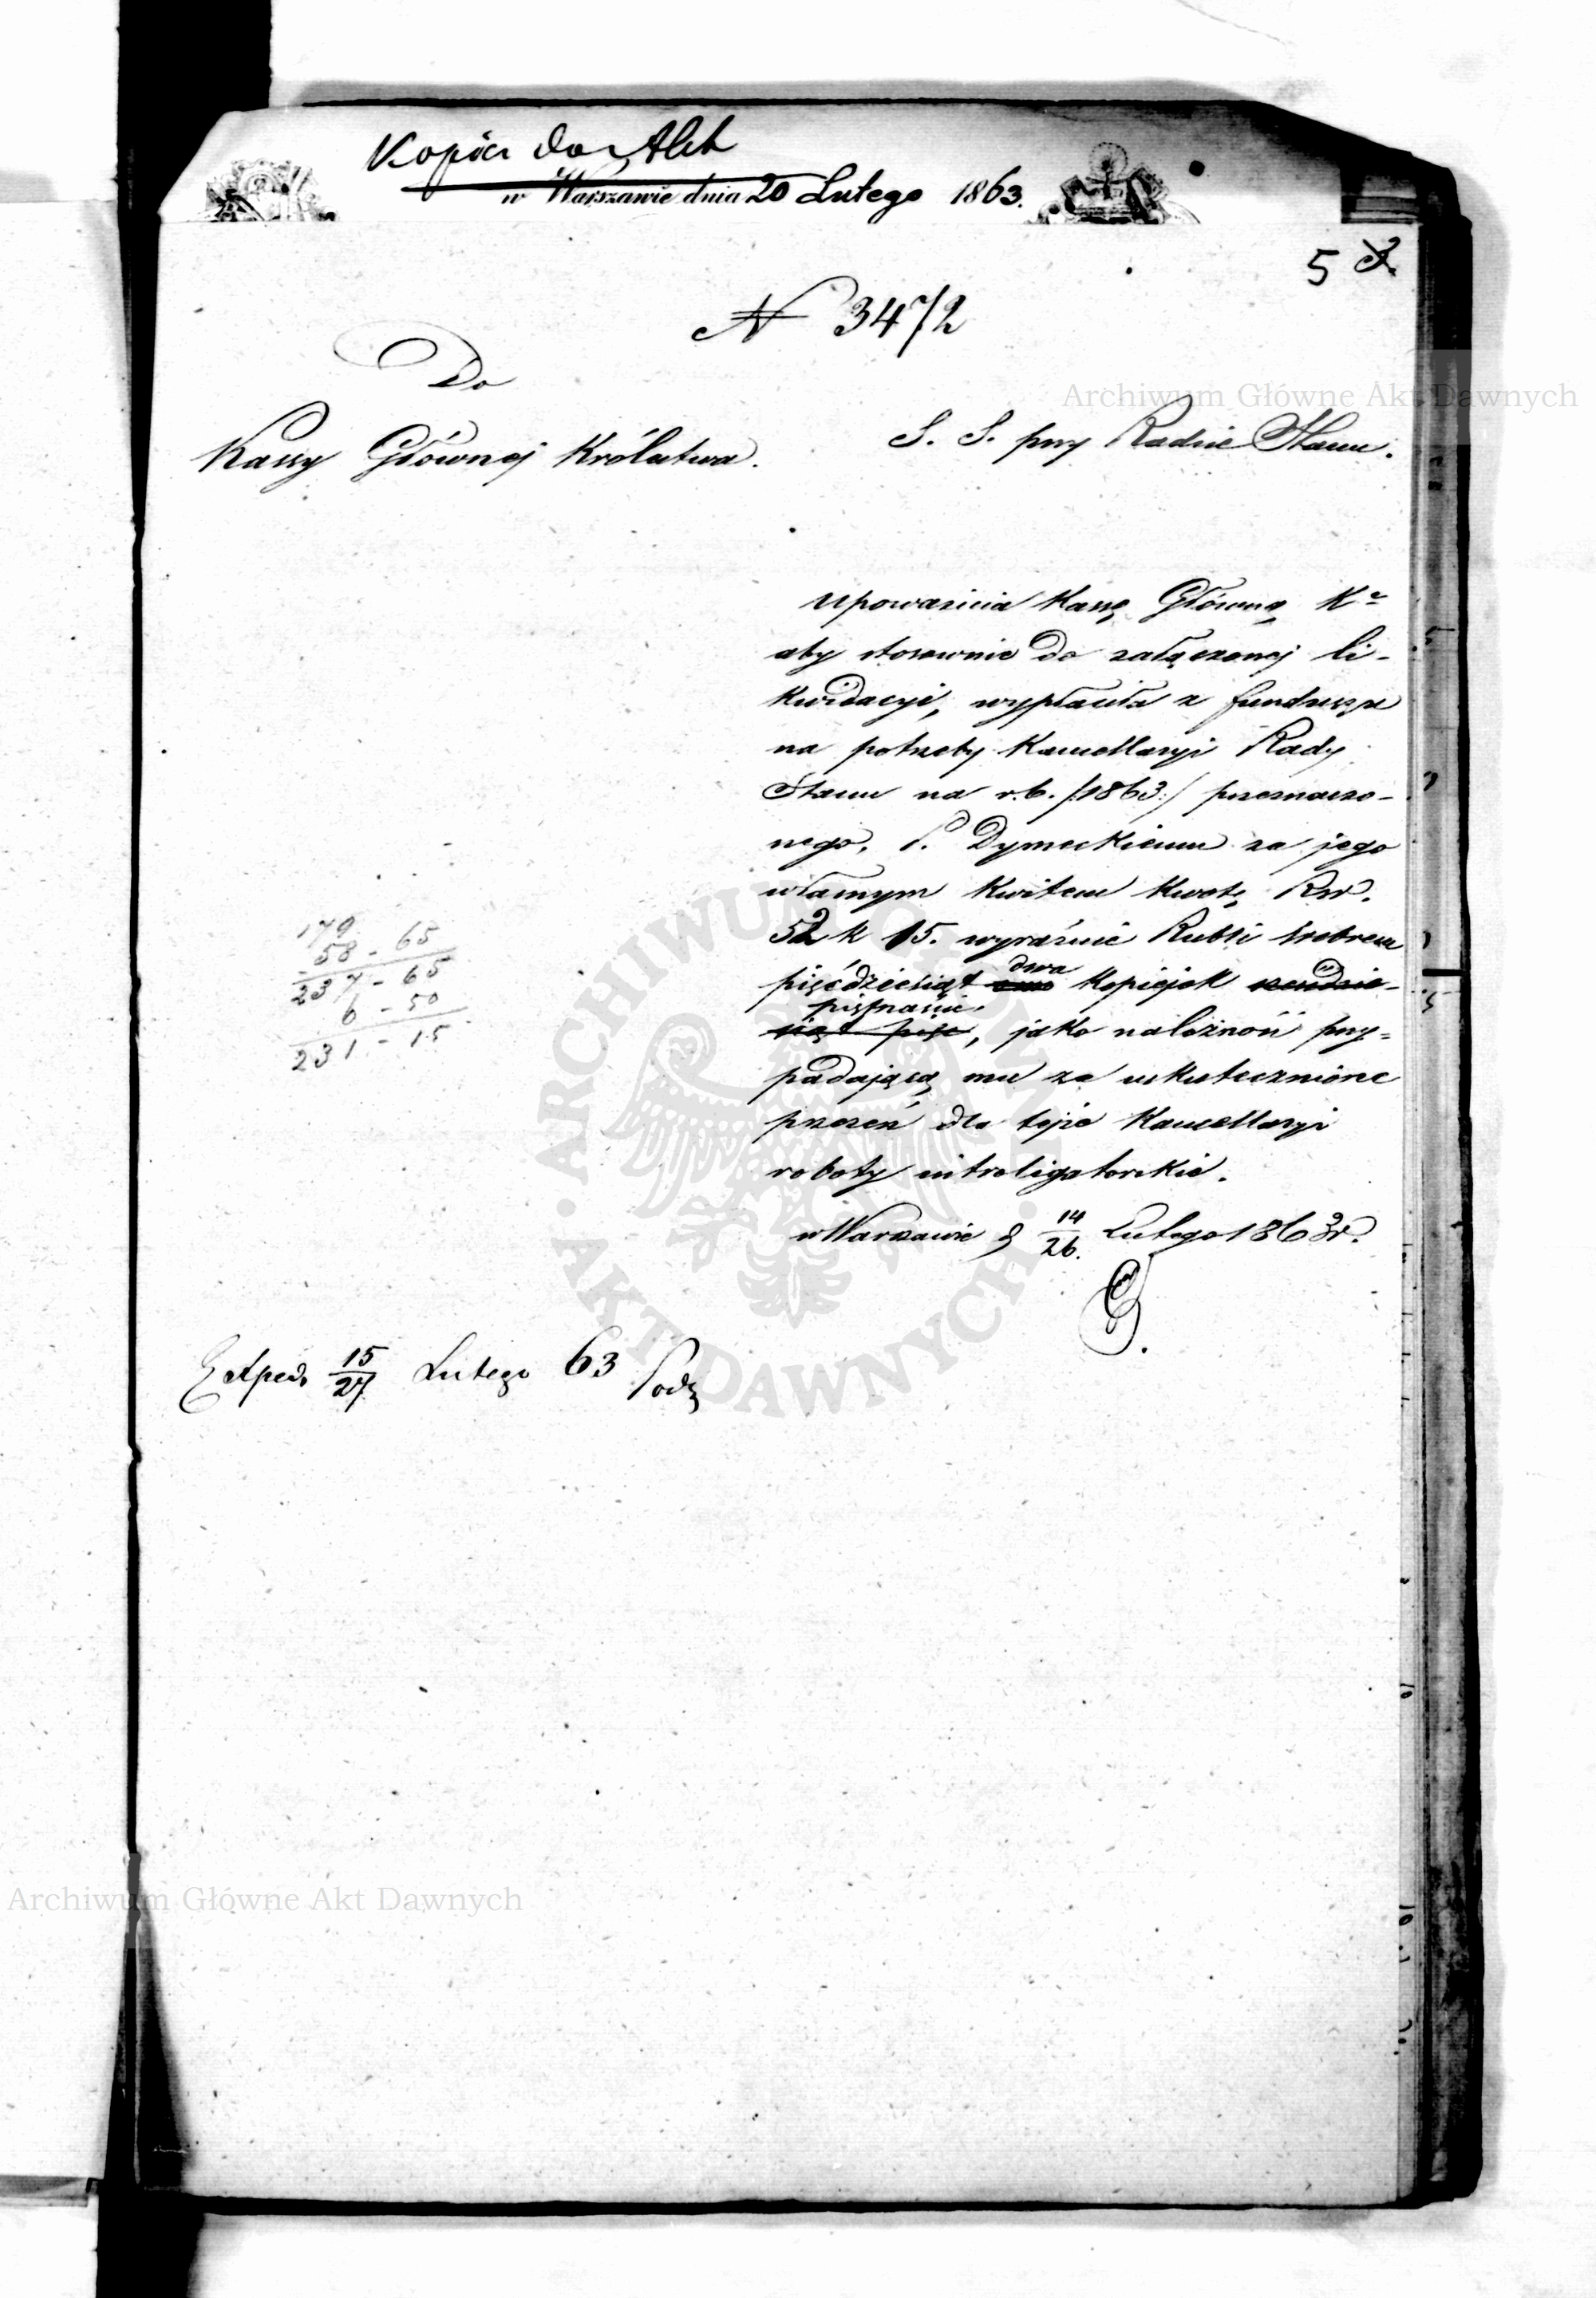 Kopia do Akt
w Warszawie dnia 20 Lutego 1863.
5 2
N 3472
Do
Kassy Głównej Królestwa.
S. S. przy Radzie Stanu.
Upoważnia Kassę Główną Kr
aby stosownie do załączonej li-
kwidacyi, wypłaciła z funduszu
na potrzeby Kancellaryi Rady
Stanu na r.b. /:1863:/ przeznaczo-
nego, P. Dymeckiemu za jego
własnym kwitem kwotę Rsr.
52 k 15. wyraźnie Rubli srebrem
pięćdziesiąt dwa kopiejek
piętnaście, jako należność przy-
padającą mu za uskutecznione
przezeń dla tejże Kancellaryi
roboty introligatorskie.
w Warszawie d 14/26. Lutego 1863 r.
179
58 - 65
237 - 65
6 - 50
231 - 15
Exped. 15/27 Lutego 63
Archiwum Główne Akt Dawnych
Archiwum Główne Akt Dawnych
ARCHIWUM GŁÓWNE AKT DAWNYCH